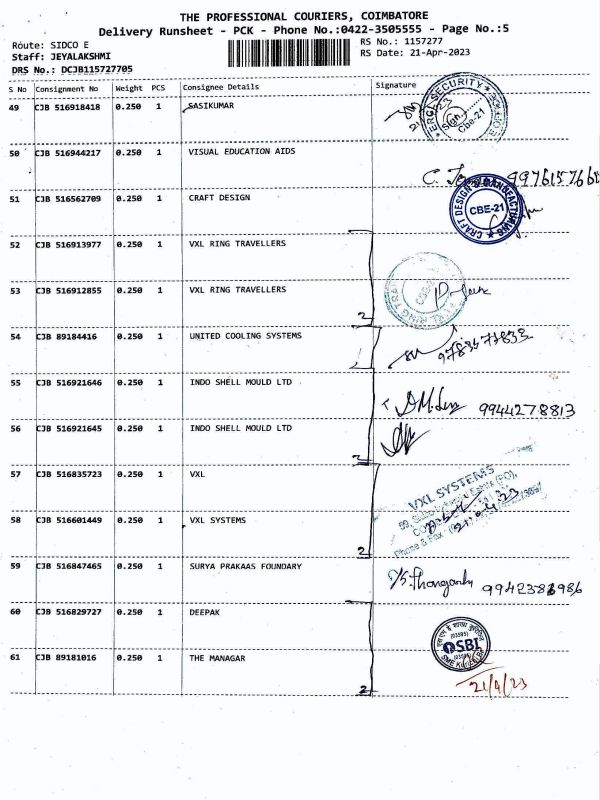 THE PROFESSIONAL COURIERS, COIMBATORE
Delivery Runsheet - PCK - Phone No.:0422-3505555 - Page No.:5
Route: SIDCO E
RS No.: 1157277
Staff: JEYALAKSHMI
RS Date: 21-Apr-2023
DRS No.: DCJB115727705
S No Consignment No Weight PCS Consignee Details Signature
49 CJB 516918418 0.250 1 SASIKUMAR
SECURITY
CBE-21
50 CJB 516944217 0.250 1 VISUAL EDUCATION AIDS
51 CJB 516562709 0.250 1 CRAFT DESIGN
CRAFT DESIGN & MANUFACTURING
CBE-21
52 CJB 516913977 0.250 1 VXL RING TRAVELLERS
53 CJB 516912855 0.250 1 VXL RING TRAVELLERS
2
54 CJB 89184416 0.250 1 UNITED COOLING SYSTEMS
1
55 CJB 516921646 0.250 1 INDO SHELL MOULD LTD
9944278813
56 CJB 516921645 0.250 1 INDO SHELL MOULD LTD
2
57 CJB 516835723 0.250 1 VXL
VXL SYSTEMS
58 CJB 516601449 0.250 1 VXL SYSTEMS
2
59 CJB 516847465 0.250 1 SURYA PRAKAAS FOUNDARY
60 CJB 516829727 0.250 1 DEEPAK
SBI
61 CJB 89181016 0.250 1 THE MANAGAR
2
21/4/23